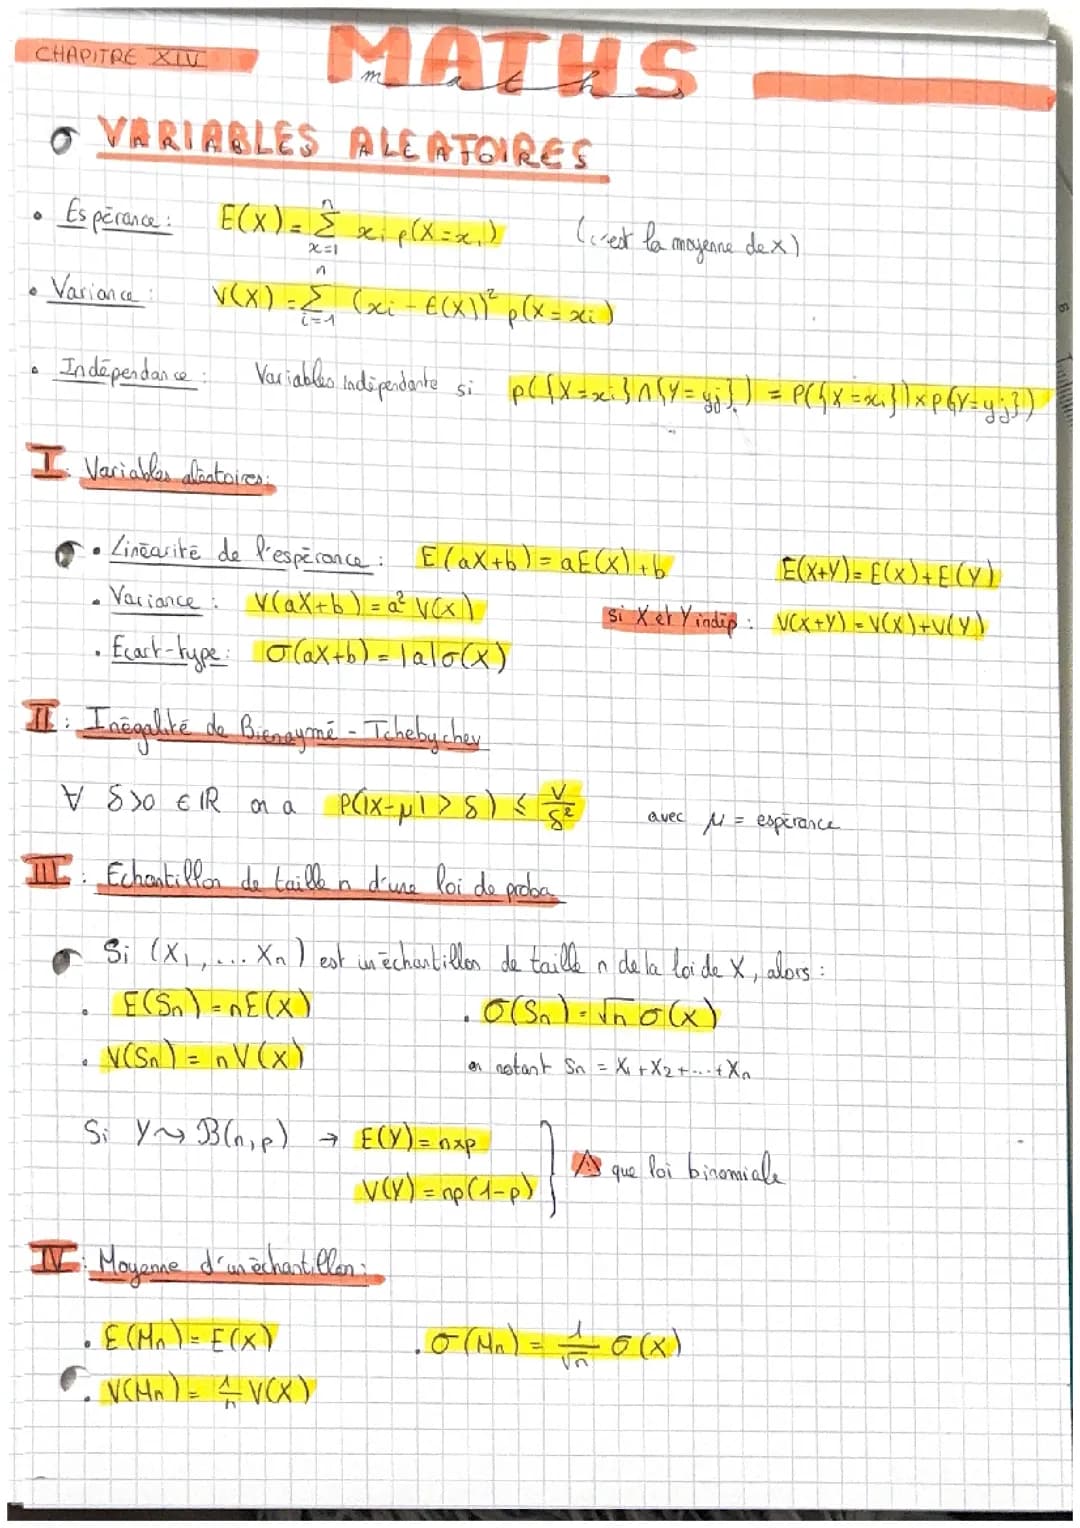 CHAPITRE XIV
MATHS
maths
VARIABLES ALEATOIRES
• Espérance : E(X) = Σ_{x=1}^{n} xi p(X = xi) (c'est la moyenne de X)
• Variance : V(X) = Σ_{i=1}^{n} (xi - E(X))² p(X = xi)
• Indépendance : Variables indépendante si p({X=xi}∩{Y=yj}) = P({X=xi})×p{Y=yj})
I : Variables aléatoires:
• Linéarité de l'espérance : E(aX+b) = aE(X)+b E(X+Y) = E(X)+E(Y)
• Variance : V(aX+b) = a² V(X) si X et Y indép : V(X+Y) = V(X)+V(Y)
• Ecart-type : σ(aX+b) = |a|σ(X)
II : Inégalité de Bienaymé - Tchebychev
∀ δ>0 ∈ ℝ on a P(|X-μ| > δ) ≤ V/δ² avec μ = espérance
III : Echantillon de taille n d'une loi de proba
Si (X₁, ... Xn) est un échantillon de taille n de la loi de X, alors :
• E(Sn) = nE(X) • σ(Sn) = √n σ(X)
• V(Sn) = nV(X) en notant Sn = X₁+X₂+...+Xn
Si Y ~ B(n,p) → E(Y) = n×p
V(Y) = np(1-p) } ⚠ que loi binomiale
IV : Moyenne d'un échantillon :
• E(Mn) = E(X) • σ(Mn) = 1/√n σ(X)
• V(Mn) = 1/n V(X)